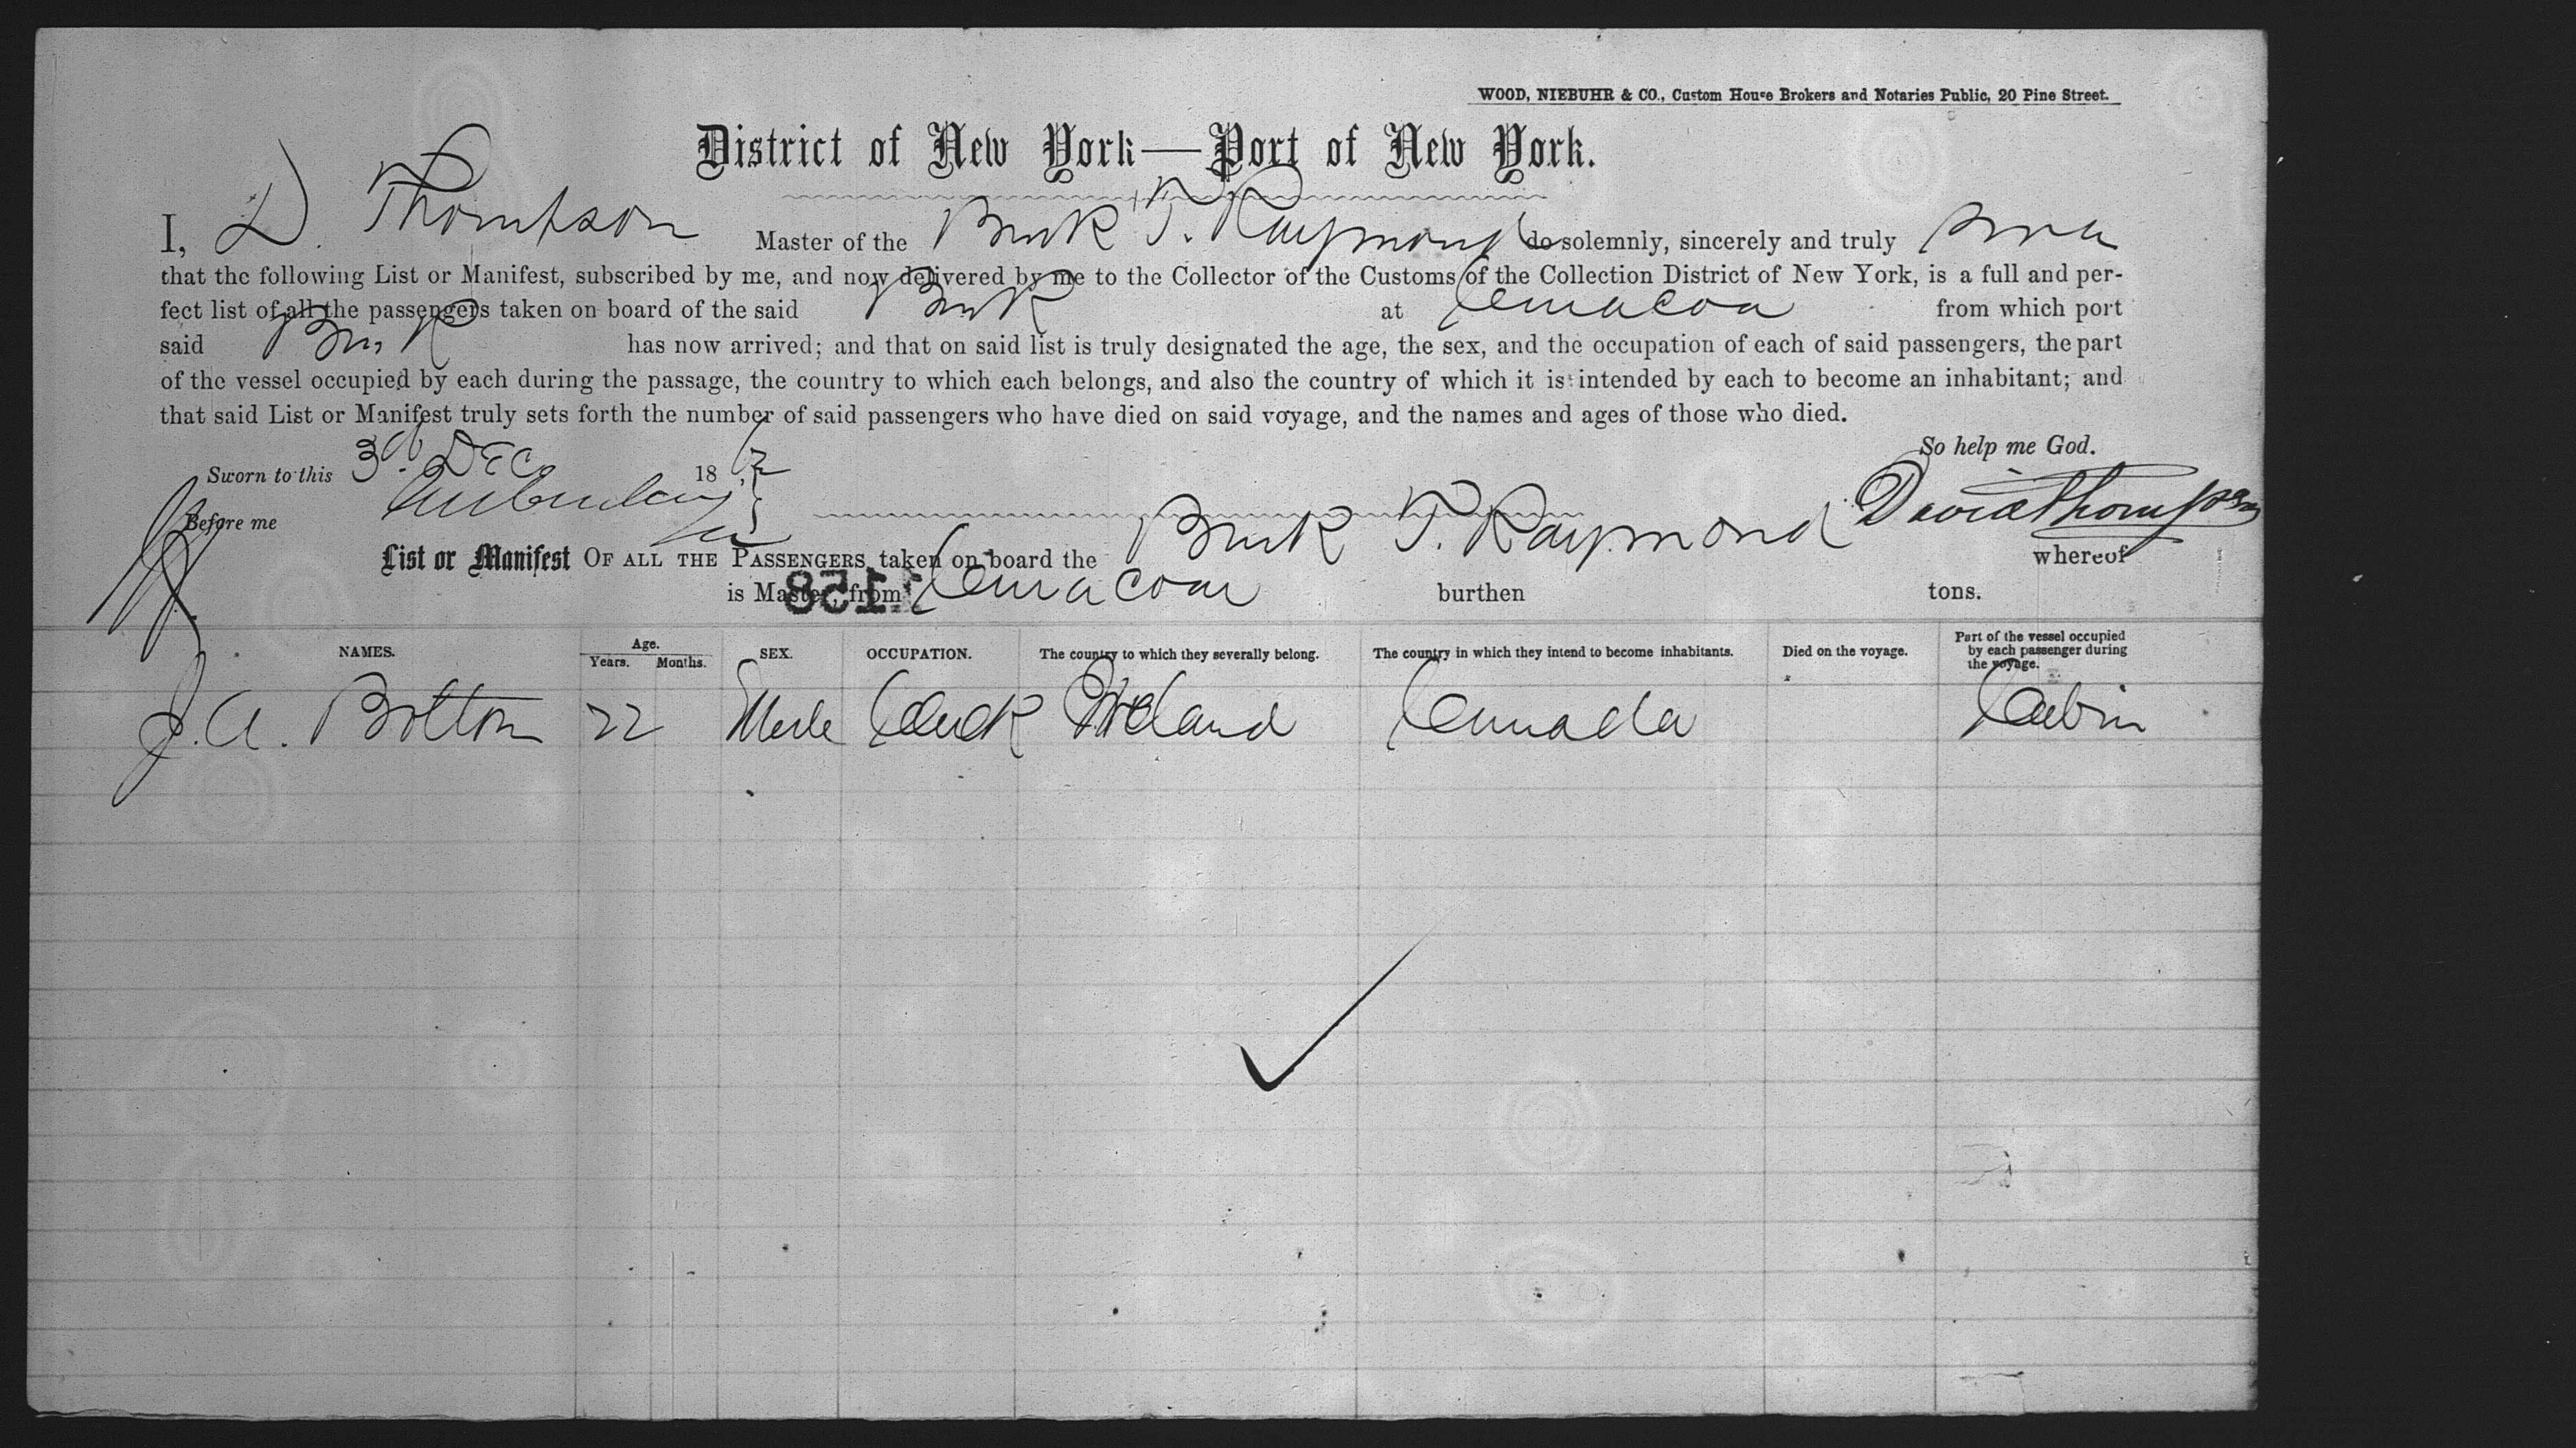 WOOD, NIEBUHR & CO., Custom House Brokers and Notaries Public, 20 Pine Street.
District of New York—Port of New York.
I, D. Thompson Master of the Bark T. Raymond do solemnly, sincerely and truly swear
that the following List or Manifest, subscribed by me, and now delivered by me to the Collector of the Customs of the Collection District of New York, is a full and per-
fect list of all the passengers taken on board of the said Bark at Curacoa from which port
said Bark has now arrived; and that on said list is truly designated the age, the sex, and the occupation of each of said passengers, the part
of the vessel occupied by each during the passage, the country to which each belongs, and also the country of which it is intended by each to become an inhabitant; and
that said List or Manifest truly sets forth the number of said passengers who have died on said voyage, and the names and ages of those who died.
So help me God.
Sworn to this 3d. Dec 1862
Before me
David Thompson
List or Manifest OF ALL THE PASSENGERS taken on board the Bark T. Raymond whereof
is Master, from Curacoa burthen tons.
1158
NAMES. Age. Years. Months. SEX. OCCUPATION. The country to which they severally belong. The country in which they intend to become inhabitants. Died on the voyage. Part of the vessel occupied by each passenger during the voyage.
J. A. Bolton 22 Male Clerk Ireland Cannada Cabin